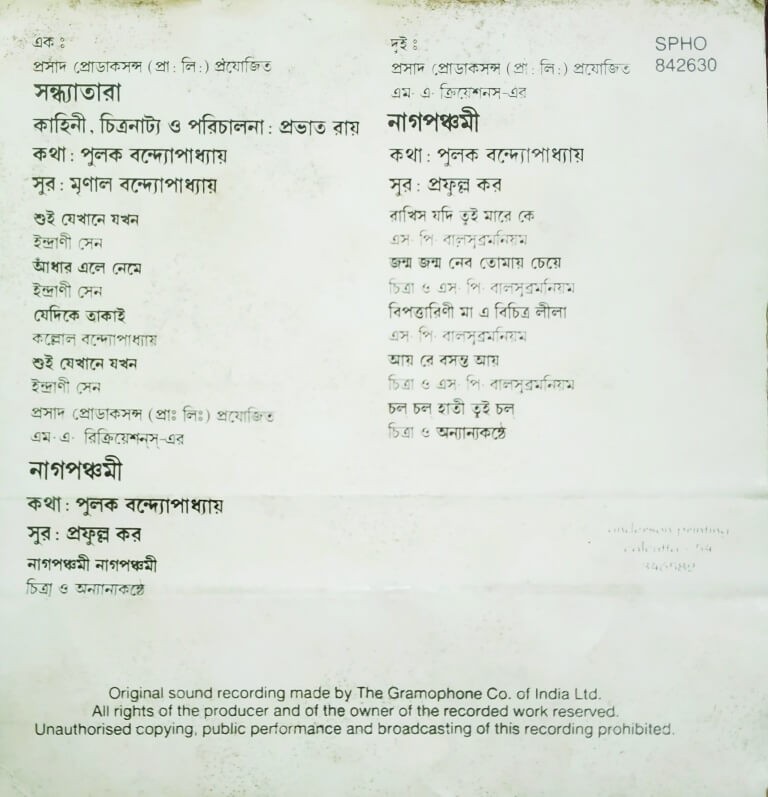 এক :
প্রসাদ প্রোডাকসন্স (প্রা : লি :) প্রযোজিত
সন্ধ্যাতারা
কাহিনী, চিত্রনাট্য ও পরিচালনা : প্রভাত রায়
কথা : পুলক বন্দ্যোপাধ্যায়
সুর : মৃণাল বন্দ্যোপাধ্যায়
শুই যেখানে যখন
ইন্দ্রাণী সেন
আঁধার এলে নেমে
ইন্দ্রাণী সেন
যেদিকে তাকাই
কল্লোল বন্দ্যোপাধ্যায়
শুই যেখানে যখন
ইন্দ্রাণী সেন
প্রসাদ প্রোডাকসন্স (প্রাঃ লিঃ) প্রযোজিত
এম. এ. রিক্রিয়েশন্‌স্-এর
নাগপঞ্চমী
কথা : পুলক বন্দ্যোপাধ্যায়
সুর : প্রফুল্ল কর
নাগপঞ্চমী নাগপঞ্চমী
চিত্রা ও অন্যান্যকণ্ঠে
দুই :
প্রসাদ প্রোডাকসন্স (প্রা : লি :) প্রযোজিত
এম. এ. ক্রিয়েশনস-এর
নাগপঞ্চমী
কথা : পুলক বন্দ্যোপাধ্যায়
সুর : প্রফুল্ল কর
রাখিস যদি তুই মারে কে
এস. পি. বালসুব্রমনিয়ম
জন্ম জন্ম নেব তোমায় চেয়ে
চিত্রা ও এস. পি. বালসুব্রমনিয়ম
বিপত্তারিণী মা এ বিচিত্র লীলা
এস. পি. বালসুব্রমনিয়ম
আয় রে বসন্ত আয়
চিত্রা ও এস. পি. বালসুব্রমনিয়ম
চল চল হাতী তুই চল্
চিত্রা ও অন্যান্যকণ্ঠে
SPHO
842630
anderson printing
calcutta - 54
Original sound recording made by The Gramophone Co. of India Ltd.
All rights of the producer and of the owner of the recorded work reserved.
Unauthorised copying, public performance and broadcasting of this recording prohibited.